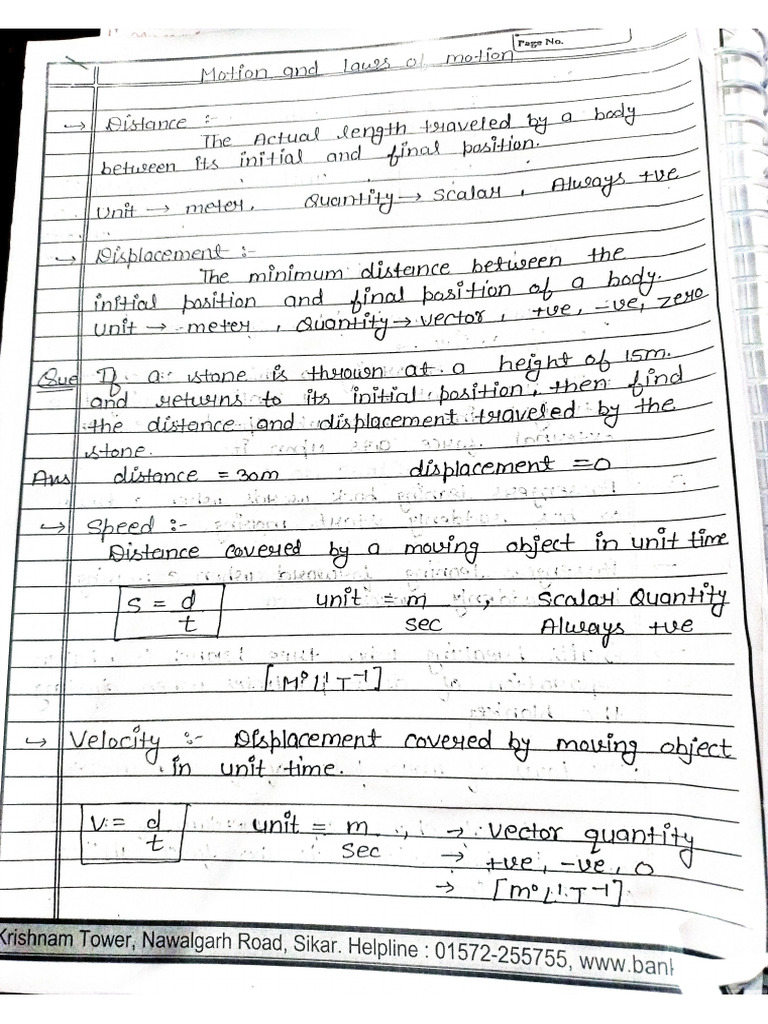 Page No.
Motion and laws of motion
→ Distance :-
The Actual length traveled by a body
between its initial and final position.
Unit → meter, Quantity → scalar, Always +ve
→ Displacement :-
The minimum distance between the
initial position and final position of a body.
Unit → meter, Quantity → vector, +ve, -ve, zero
Que If a stone is thrown at a height of 15m.
and returns to its initial position, then find
the distance and displacement traveled by the
stone.
Ans distance = 30m displacement = 0
→ Speed :-
Distance covered by a moving object in unit time
S = d/t unit = m/sec, Scalar Quantity
Always +ve
[M⁰L¹T⁻¹]
→ Velocity :- Displacement covered by moving object
in unit time.
V = d/t unit = m/sec, → vector quantity
→ +ve, -ve, 0
→ [M⁰L¹T⁻¹]
Krishnam Tower, Nawalgarh Road, Sikar. Helpline : 01572-255755, www.bank